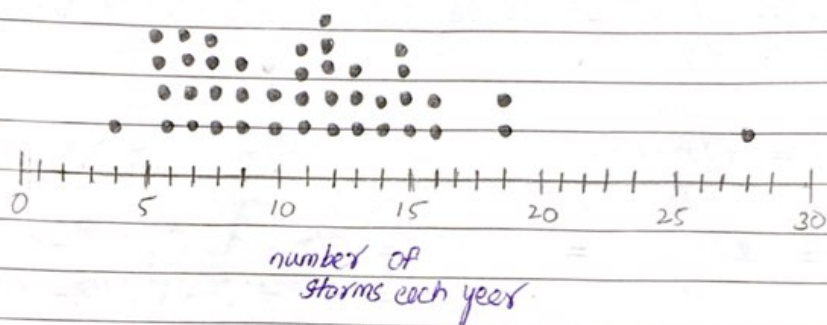 0 5 10 15 20 25 30
number of
storms each year.